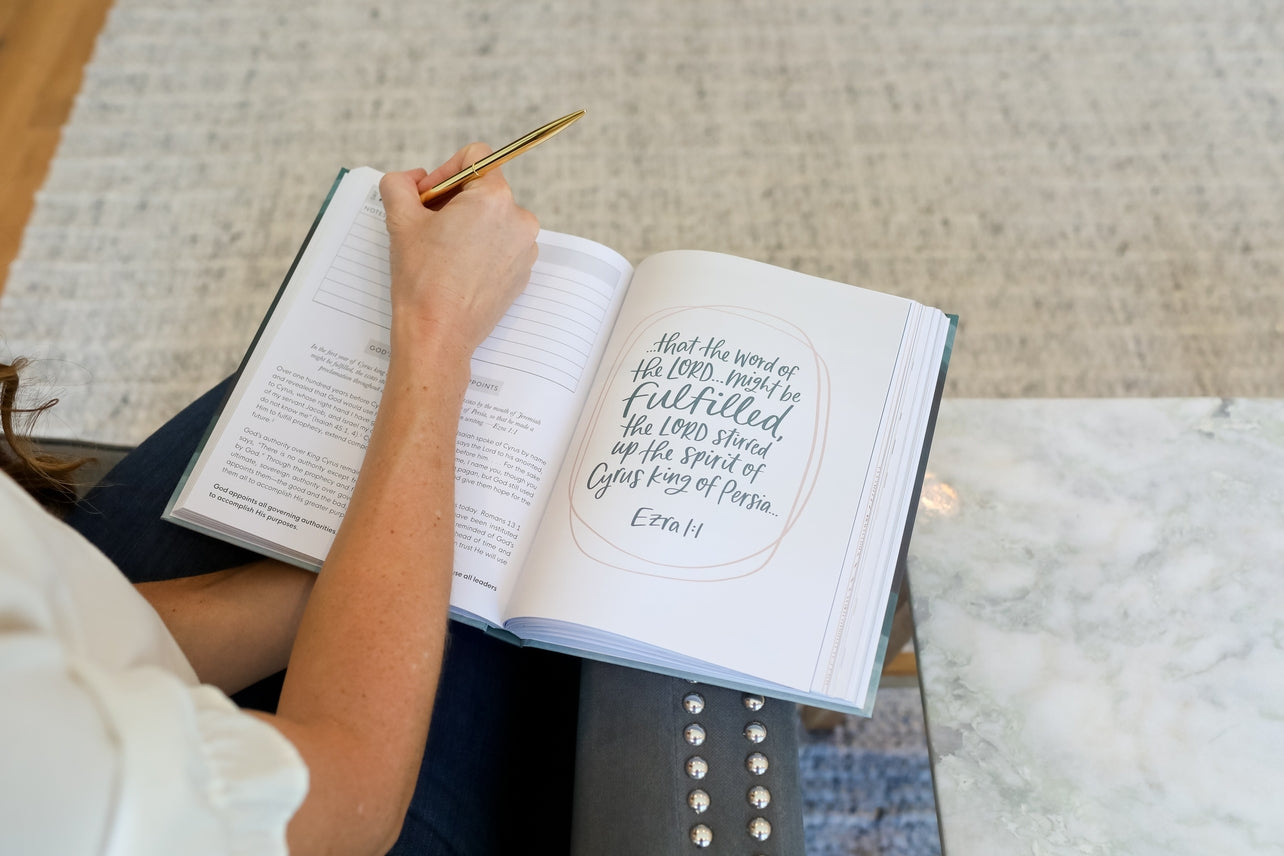 NOTES
GOD
POINTS
In the first year of Cyrus king
might be fulfilled, the
proclamation throughout
by the mouth of Jeremiah
of Persia, so that he made a
writing. —Ezra 1:1
Over one hundred years before
and revealed that God would use
to Cyrus, whose right hand I
of my servant Jacob, and Israel my
do not know me" (Isaiah 45:1, 4).
Him to fulfill prophecy, extend
future.
Isaiah spoke of Cyrus by name
says the LORD to his anointed,
before him . . . For the sake
I name you, though you
pagan, but God still used
and give them hope for the
God's authority over King Cyrus
says, "There is no authority except
by God." Through the prophecy and
ultimate, sovereign authority over
appoints them—the good and the bad,
them all to accomplish His greater
today. Romans 13:1
have been instituted
reminded of God's
ahead of time and
trust He will use
God appoints all governing authorities
to accomplish His purposes.
use all leaders
...that the word of
the LORD...might be
fulfilled,
the LORD stirred
up the spirit of
Cyrus king of Persia...
Ezra 1:1